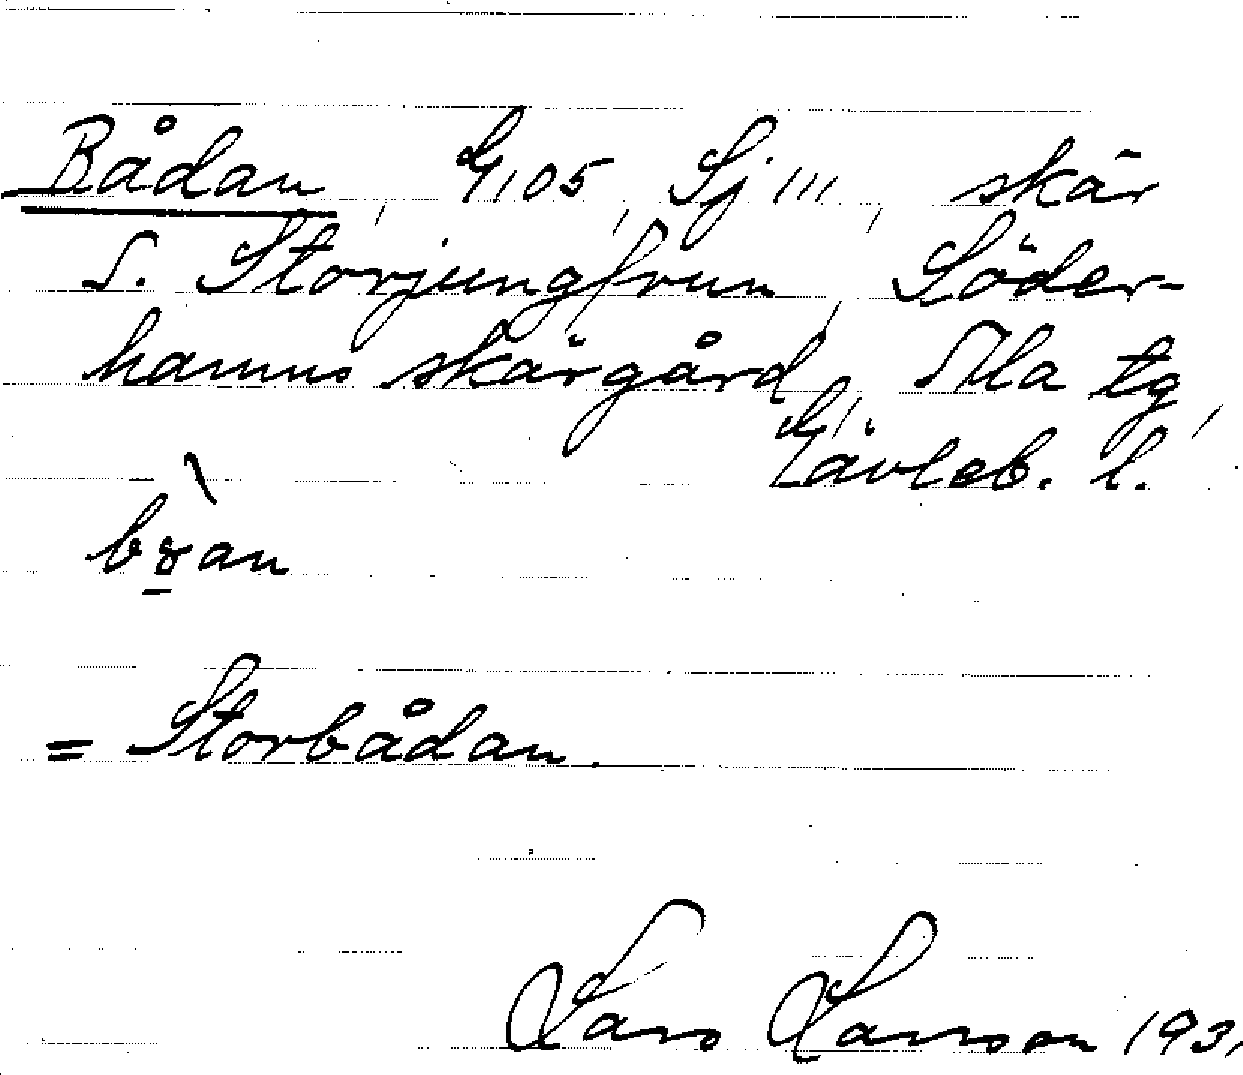 Bådan, G105, Sj 111, skär
S. Storjungfrun, Söder-
hamns skärgård, Ala tg,
Gävleb. l.
= Storbådan.
Lars Larsson 193